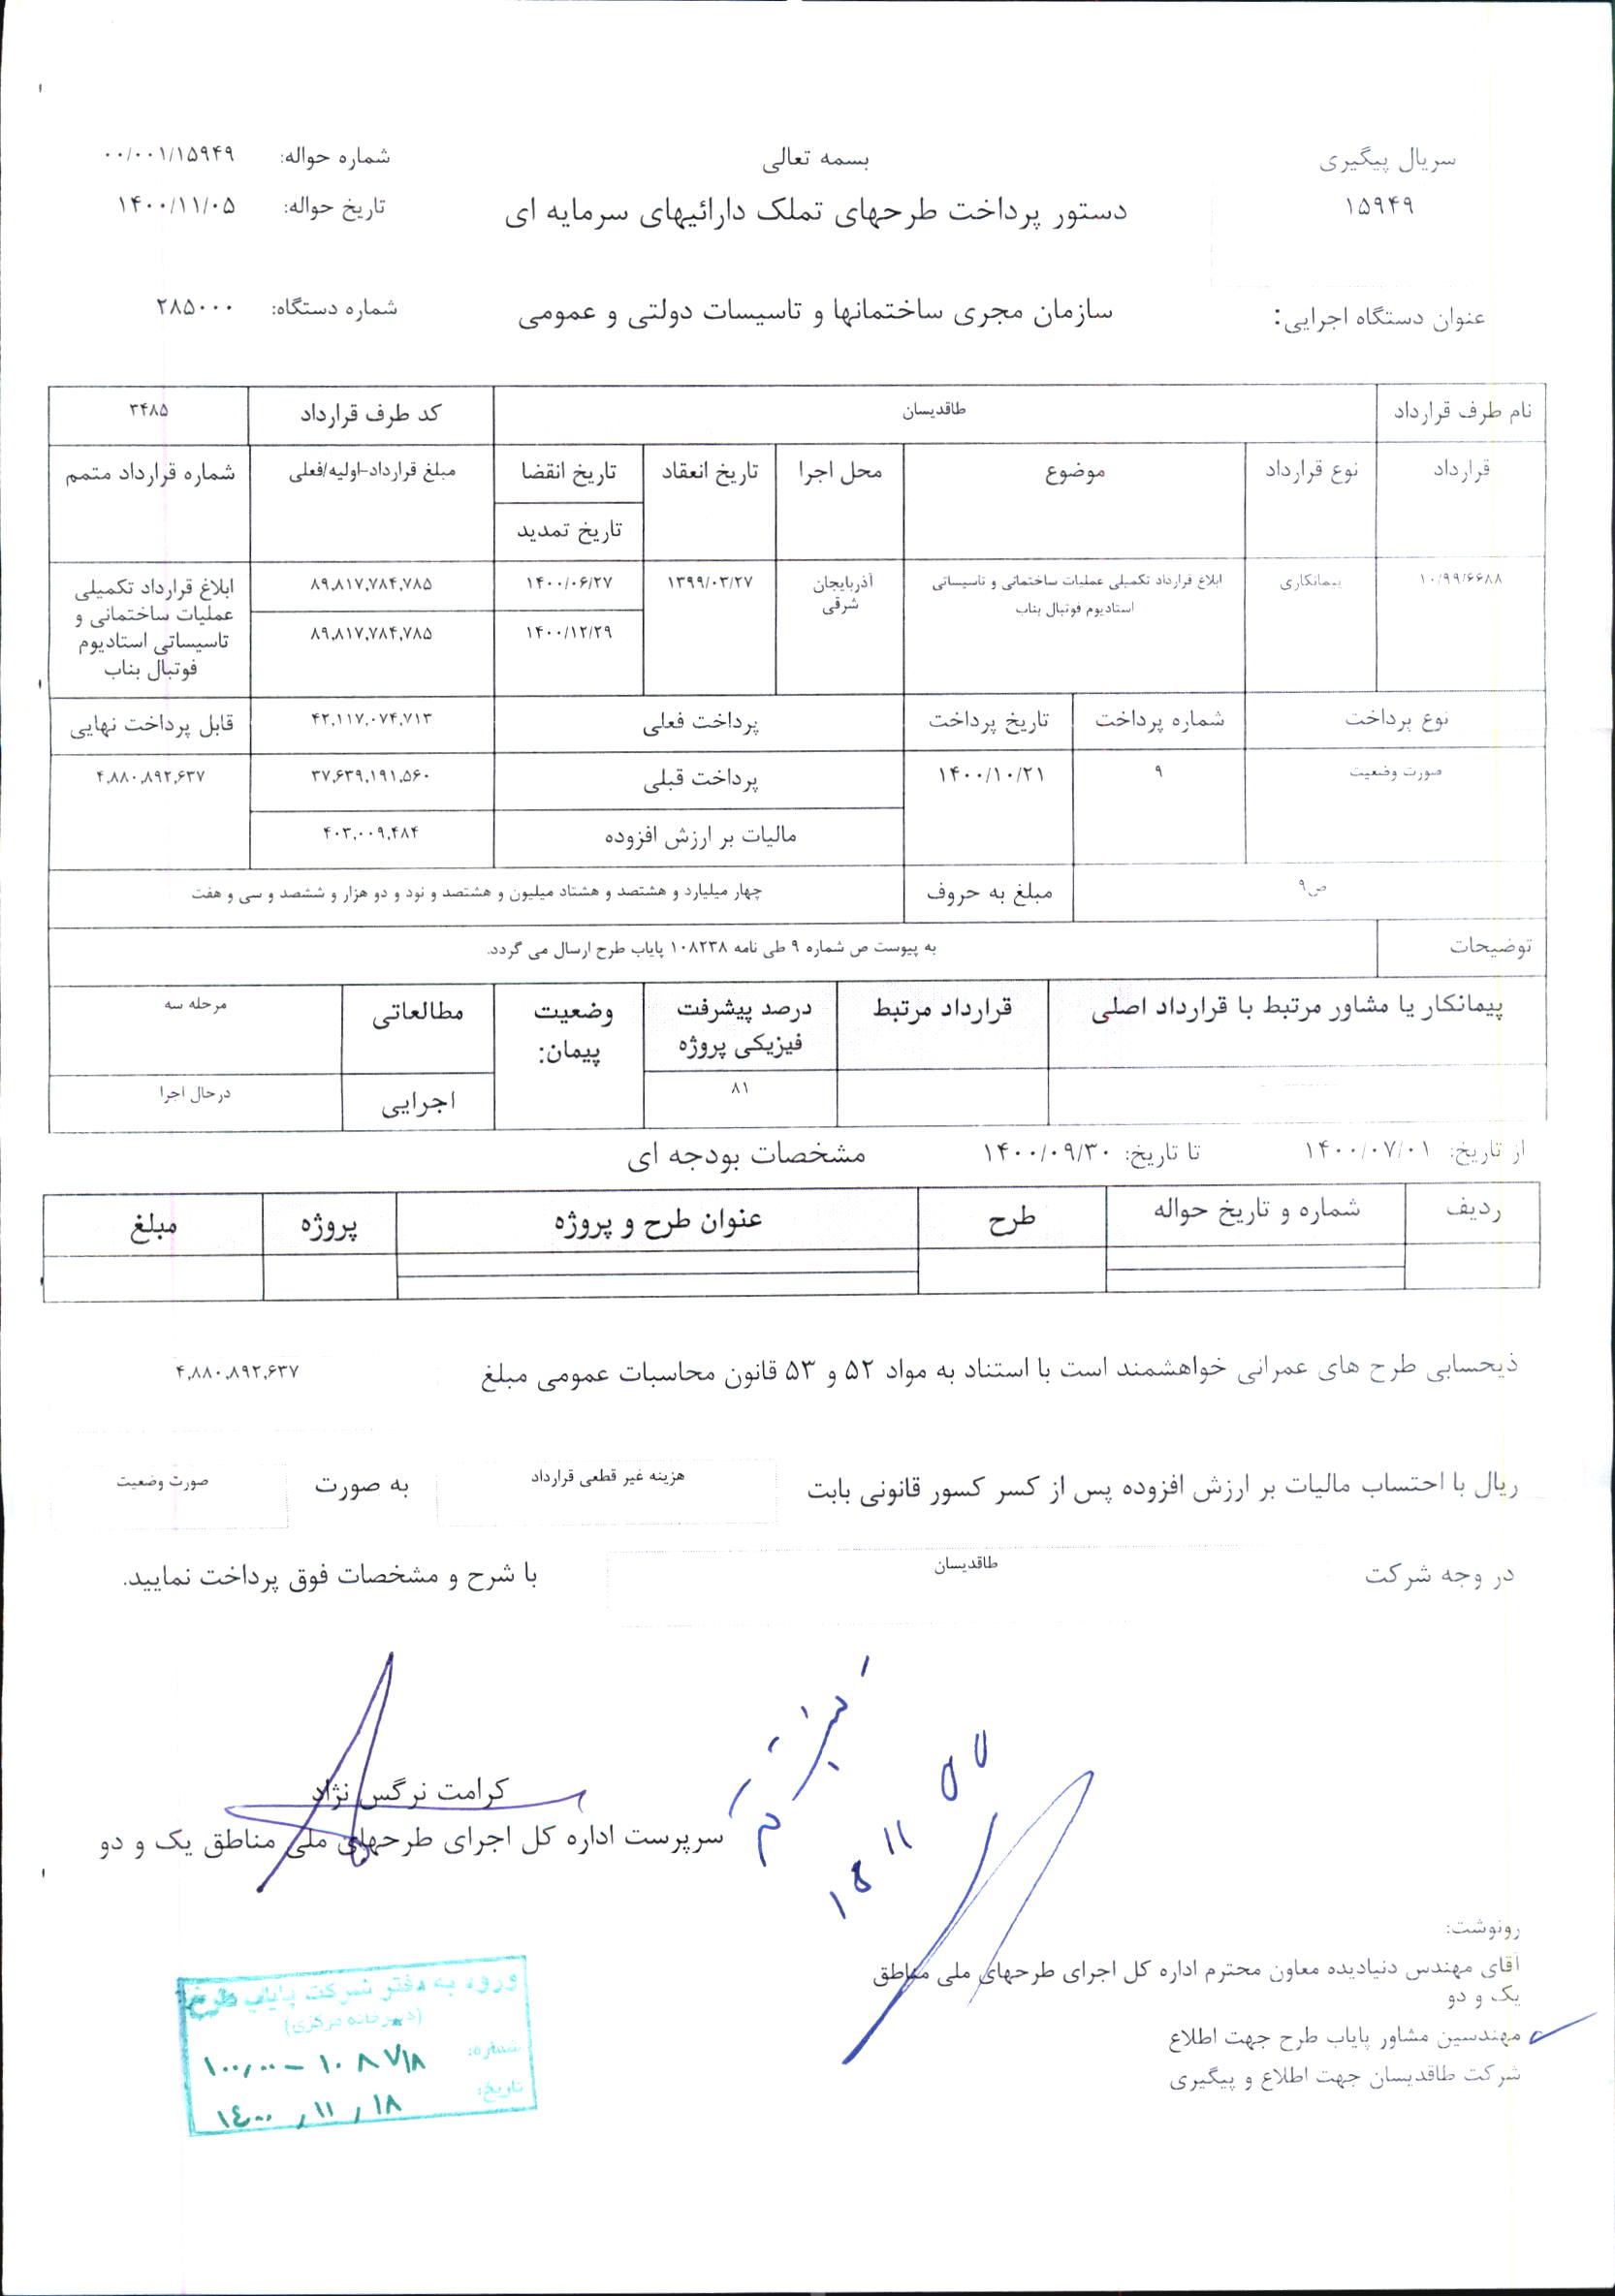 بسمه تعالی
سریال پیگیری
۱۵۹۴۹
شماره حواله: ۰۰/۰۰۱/۱۵۹۴۹
دستور پرداخت طرحهای تملک دارائیهای سرمایه ای
تاریخ حواله: ۱۴۰۰/۱۱/۰۵
عنوان دستگاه اجرایی: سازمان مجری ساختمانها و تاسیسات دولتی و عمومی
شماره دستگاه: ۲۸۵۰۰۰
نام طرف قرارداد طاقدیسان کد طرف قرارداد ۳۴۸۵
قرارداد نوع قرارداد موضوع محل اجرا تاریخ انعقاد تاریخ انقضا مبلغ قرارداد-اولیه/فعلی شماره قرارداد متمم
تاریخ تمدید
۱۰/۹۹/۶۶۸۸ پیمانکاری ابلاغ قرارداد تکمیلی عملیات ساختمانی و تاسیساتی
استادیوم فوتبال بناب
آذربایجان
شرقی
۱۳۹۹/۰۳/۲۷ ۱۴۰۰/۰۶/۲۷ ۸۹,۸۱۷,۷۸۴,۷۸۵
۱۴۰۰/۱۲/۲۹ ۸۹,۸۱۷,۷۸۴,۷۸۵
ابلاغ قرارداد تکمیلی
عملیات ساختمانی و
تاسیساتی استادیوم
فوتبال بناب
نوع پرداخت شماره پرداخت تاریخ پرداخت پرداخت فعلی ۴۲,۱۱۷,۰۷۴,۷۱۳ قابل پرداخت نهایی
صورت وضعیت ۹ ۱۴۰۰/۱۰/۲۱ پرداخت قبلی ۳۷,۶۳۹,۱۹۱,۵۶۰ ۴,۸۸۰,۸۹۲,۶۳۷
مالیات بر ارزش افزوده ۴۰۳,۰۰۹,۴۸۴
ص۹ مبلغ به حروف چهار میلیارد و هشتصد و هشتاد میلیون و هشتصد و نود و دو هزار و ششصد و سی و هفت
توضیحات به پیوست ص شماره ۹ طی نامه ۱۰۸۲۳۸ پایاب طرح ارسال می گردد.
پیمانکار یا مشاور مرتبط با قرارداد اصلی قرارداد مرتبط درصد پیشرفت
فیزیکی پروژه
وضعیت
پیمان:
مطالعاتی مرحله سه
۸۱ اجرایی درحال اجرا
از تاریخ: ۱۴۰۰/۰۷/۰۱ تا تاریخ: ۱۴۰۰/۰۹/۳۰ مشخصات بودجه ای
ردیف شماره و تاریخ حواله طرح عنوان طرح و پروژه پروژه مبلغ
ذیحسابی طرح های عمرانی خواهشمند است با استناد به مواد ۵۲ و ۵۳ قانون محاسبات عمومی مبلغ ۴,۸۸۰,۸۹۲,۶۳۷
ریال با احتساب مالیات بر ارزش افزوده پس از کسر کسور قانونی بابت هزینه غیر قطعی قرارداد به صورت صورت وضعیت
در وجه شرکت طاقدیسان با شرح و مشخصات فوق پرداخت نمایید.
کرامت نرگس نژاد
سرپرست اداره کل اجرای طرحهای ملی مناطق یک و دو
رونوشت:
آقای مهندس دنیادیده معاون محترم اداره کل اجرای طرحهای ملی مناطق
یک و دو
مهندسین مشاور پایاب طرح جهت اطلاع
شرکت طاقدیسان جهت اطلاع و پیگیری
ورود به دفتر شرکت پایاب طرح
(دبیرخانه مرکزی)
شماره: ۱۰۰,۰۰ – ۱۰۸۷۱۸
تاریخ: ۱۴۰۰,۱۱,۱۸